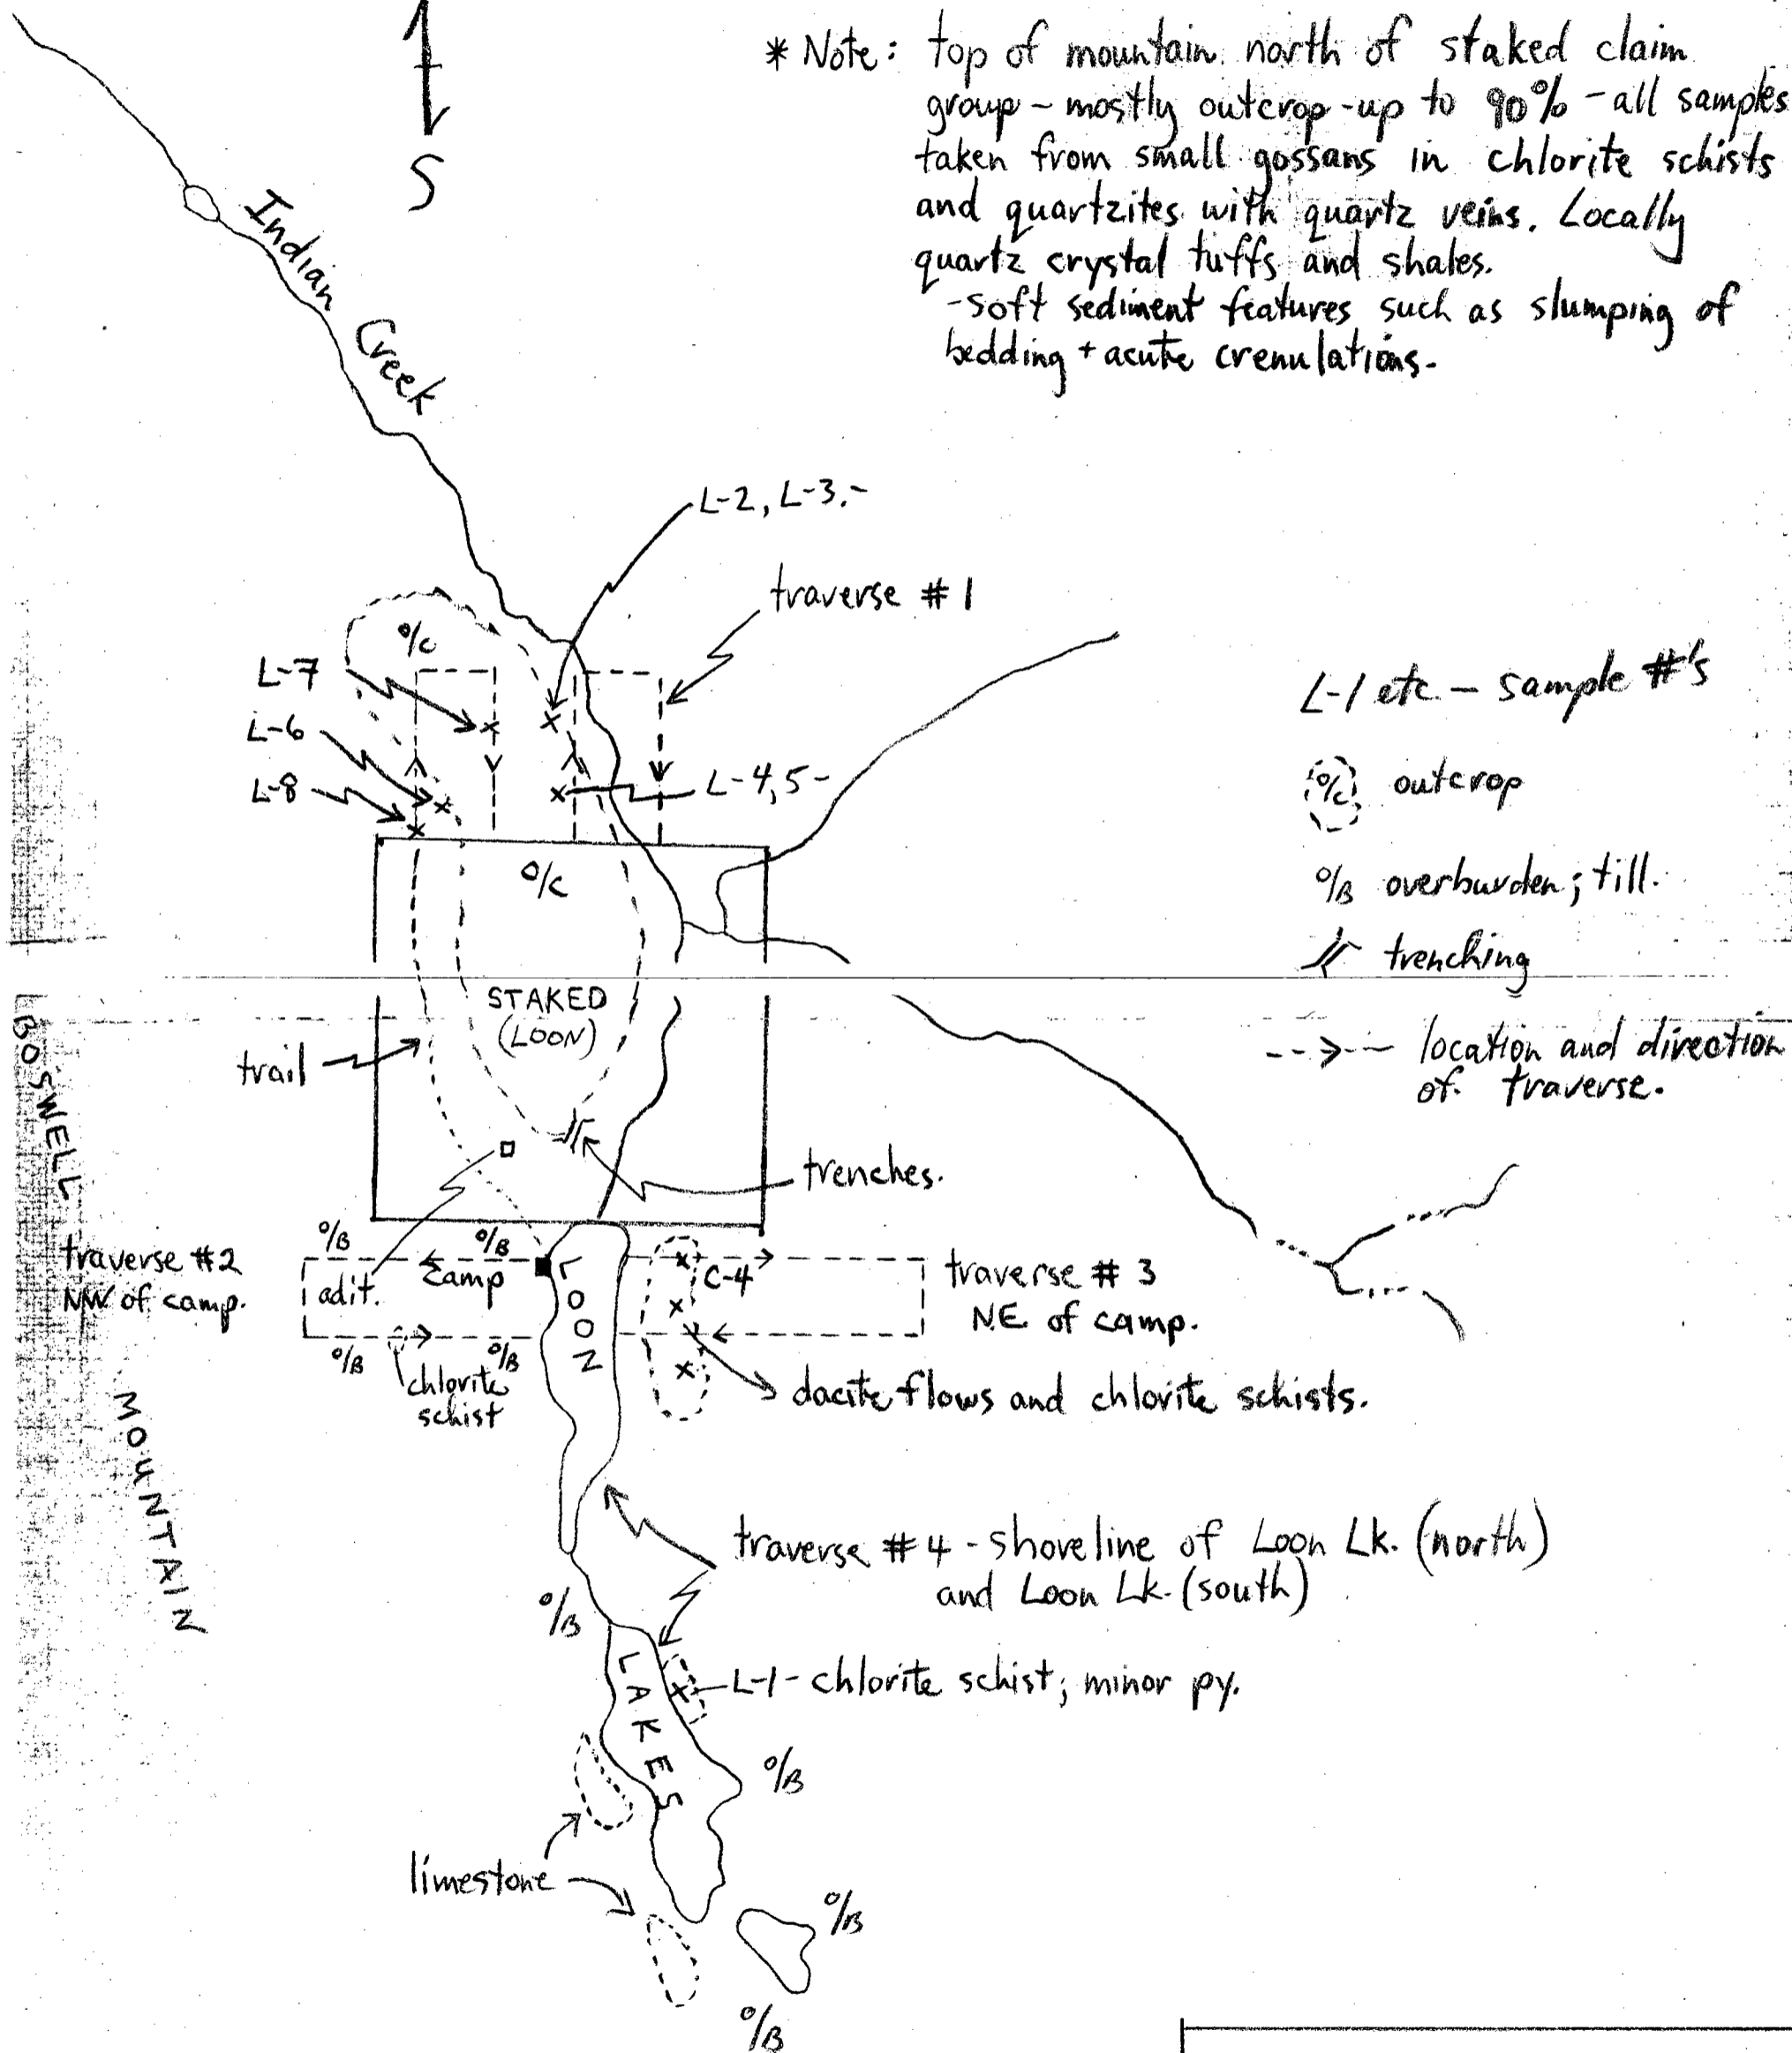 S
* Note: top of mountain north of staked claim
group - mostly outcrop - up to 90% - all samples
taken from small gossans in chlorite schists
and quartzites with quartz veins. Locally
quartz crystal tuffs and shales.
- soft sediment features such as slumping of
bedding + acute crenulations.
Indian Creek
L-2, L-3.-
traverse #1
o/c
L-7
L-6
L-8
L-4,5-
L-1 etc - sample #'s
o/c outcrop
o/B overburden; till.
trenching
location and direction
of traverse.
o/c
STAKED
(LOON)
trail
trenches.
BOSWELL
MOUNTAIN
o/B
o/B
traverse #2
NW of camp.
adit.
camp
C-4
traverse #3
NE of camp.
o/B
o/B
chlorite
schist
LOON
dacite flows and chlorite schists.
traverse #4 - shoreline of Loon Lk. (north)
and Loon Lk. (south)
o/B
LAKES
L-1 - chlorite schist; minor py.
o/B
limestone
o/B
o/B